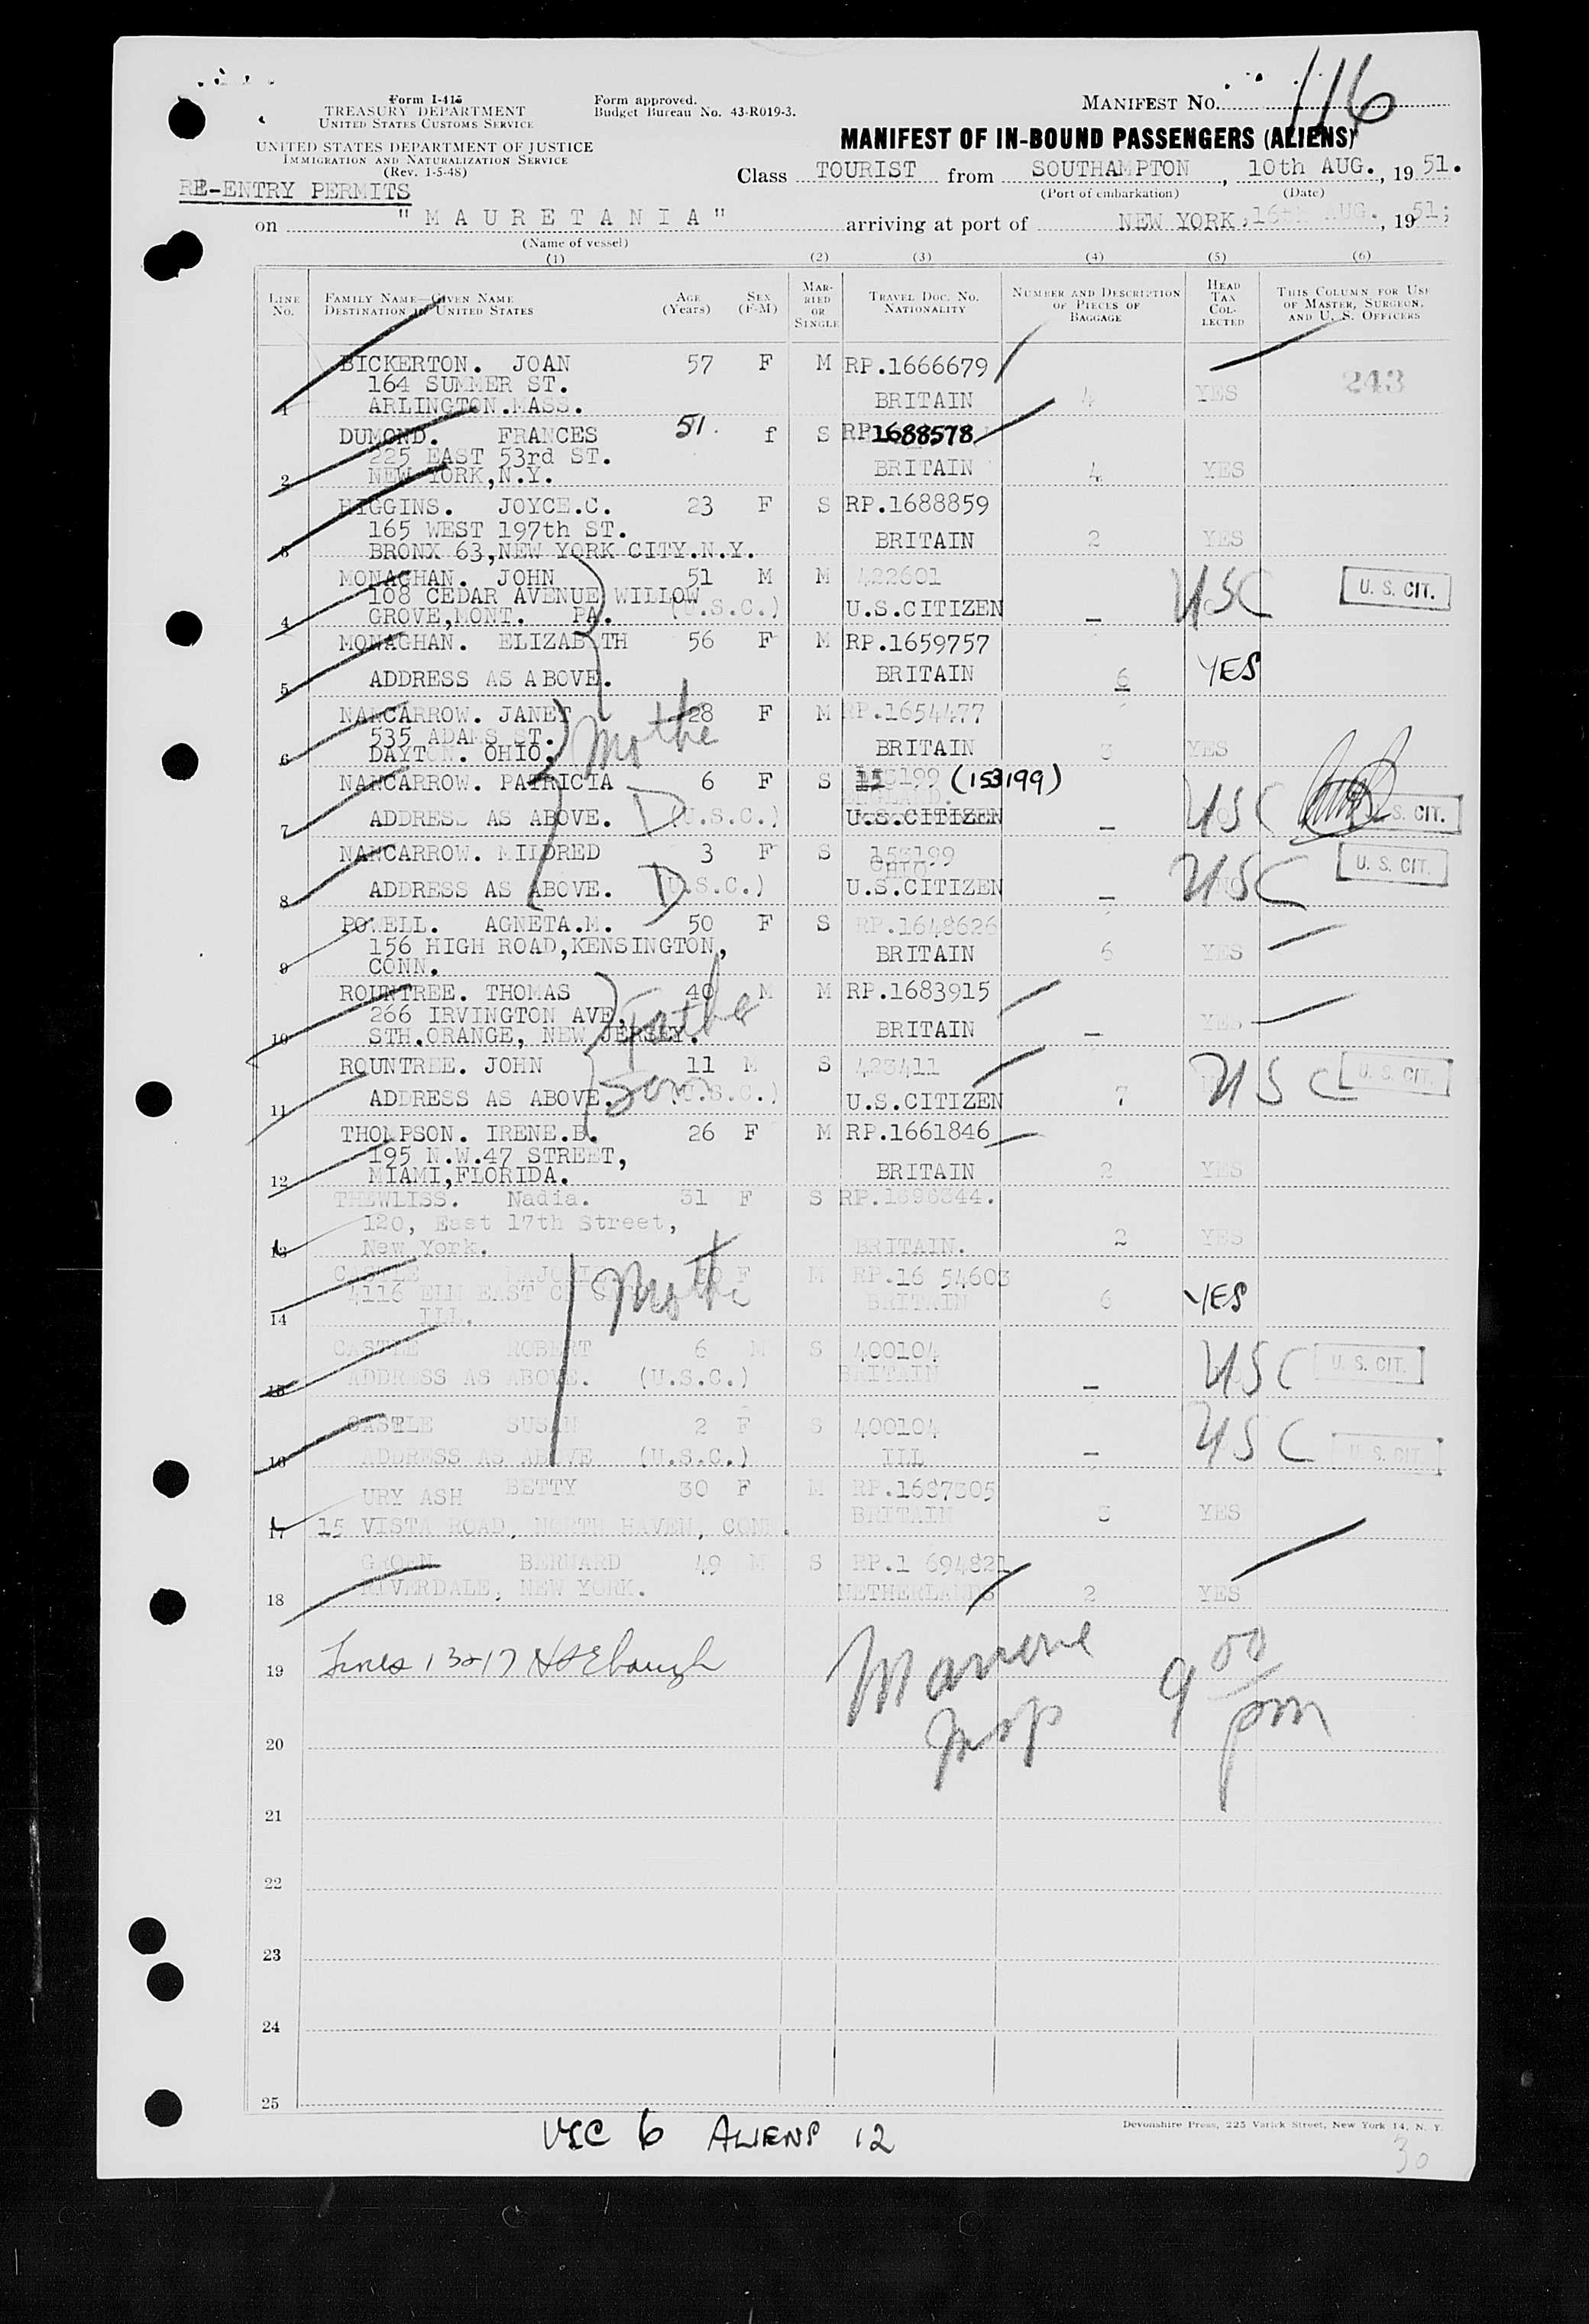 Form I-415
TREASURY DEPARTMENT
UNITED STATES CUSTOMS SERVICE
UNITED STATES DEPARTMENT OF JUSTICE
IMMIGRATION AND NATURALIZATION SERVICE
(Rev. 1-5-48)
RE-ENTRY PERMITS
Form approved.
Budget Bureau No. 43-R019-3.
MANIFEST NO. 116
MANIFEST OF IN-BOUND PASSENGERS (ALIENS)
Class TOURIST from SOUTHAMPTON, 10th AUG., 1951.
(Port of embarkation) (Date)
on "MAURETANIA" arriving at port of NEW YORK, 16th AUG., 1951;
(Name of vessel)
(1) (2) (3) (4) (5) (6)
LINE NO. FAMILY NAME—GIVEN NAME DESTINATION IN UNITED STATES AGE (Years) SEX (F-M) MARRIED OR SINGLE TRAVEL DOC. NO. NATIONALITY NUMBER AND DESCRIPTION OF PIECES OF BAGGAGE HEAD TAX COLLECTED THIS COLUMN FOR USE OF MASTER, SURGEON, AND U. S. OFFICERS
BICKERTON. JOAN 57 F M RP.1666679
164 SUMMER ST. 243
1 ARLINGTON.MASS. BRITAIN 4 YES
DUMOND. FRANCES 51. f S RP1688578
225 EAST 53rd ST.
2 NEW YORK,N.Y. BRITAIN 4 YES
HIGGINS. JOYCE.C. 23 F S RP.1688859
165 WEST 197th ST.
3 BRONX 63,NEW YORK CITY.N.Y. BRITAIN 2 YES
MONAGHAN. JOHN 51 M M 422601
108 CEDAR AVENUE WILLOW USC U. S. CIT.
4 GROVE,MONT. PA. (U.S.C.) U.S.CITIZEN –
MONAGHAN. ELIZABETH 56 F M RP.1659757
5 ADDRESS AS ABOVE. BRITAIN 6 YES
NANCARROW. JANET 28 F M RP.1654477
535 ADAMS ST. Mothe
6 DAYTON. OHIO. BRITAIN 3 YES
NANCARROW. PATRICIA 6 F S 153199 (153199)
7 ADDRESS AS ABOVE. D (U.S.C.) U.S.CITIZEN – USC U. S. CIT.
NANCARROW. MILDRED 3 F S 153199
OHIO
8 ADDRESS AS ABOVE. D (U.S.C.) U.S.CITIZEN – USC U. S. CIT.
POWELL. AGNETA.M. 50 F S RP.1648626
156 HIGH ROAD,KENSINGTON,
9 CONN. BRITAIN 6 YES
ROUNTREE. THOMAS 40 M M RP.1683915
266 IRVINGTON AVE, Fathe
10 STH.ORANGE, NEW JERSEY. BRITAIN – YES
ROUNTREE. JOHN 11 M S 423411
11 ADDRESS AS ABOVE. Son (U.S.C.) U.S.CITIZEN 7 USC U. S. CIT.
THOMPSON. IRENE.B. 26 F M RP.1661846
195 N.W.47 STREET,
12 MIAMI,FLORIDA. BRITAIN 2 YES
THEWLISS. Nadia. 31 F S RP.1696344.
120, East 17th Street,
13 New York. BRITAIN. 2 YES
CASTLE F M RP.16 54603
4116 ELM EAST Mothe BRITAIN 6 YES
14 ILL.
CASTLE ROBERT 6 M S 400104
15 ADDRESS AS ABOVE. (U.S.C.) BRITAIN – USC U. S. CIT.
CASTLE SUSAN 2 F S 400104
16 ADDRESS AS ABOVE (U.S.C.) ILL – USC U. S. CIT.
URY ASH BETTY 30 F M RP.1687305
BRITAIN 3 YES
17 15 VISTA ROAD, NORTH HAVEN, CONN.
GROEN BERNARD 49 M S RP.1 694821
18 RIVERDALE, NEW YORK. NETHERLANDS 2 YES
19 Lines 13 & 17
Insp 9 00 pm
20
21
22
23
24
25
USC 6 ALIENS 12
Devonshire Press, 225 Varick Street, New York 14, N. Y.
30